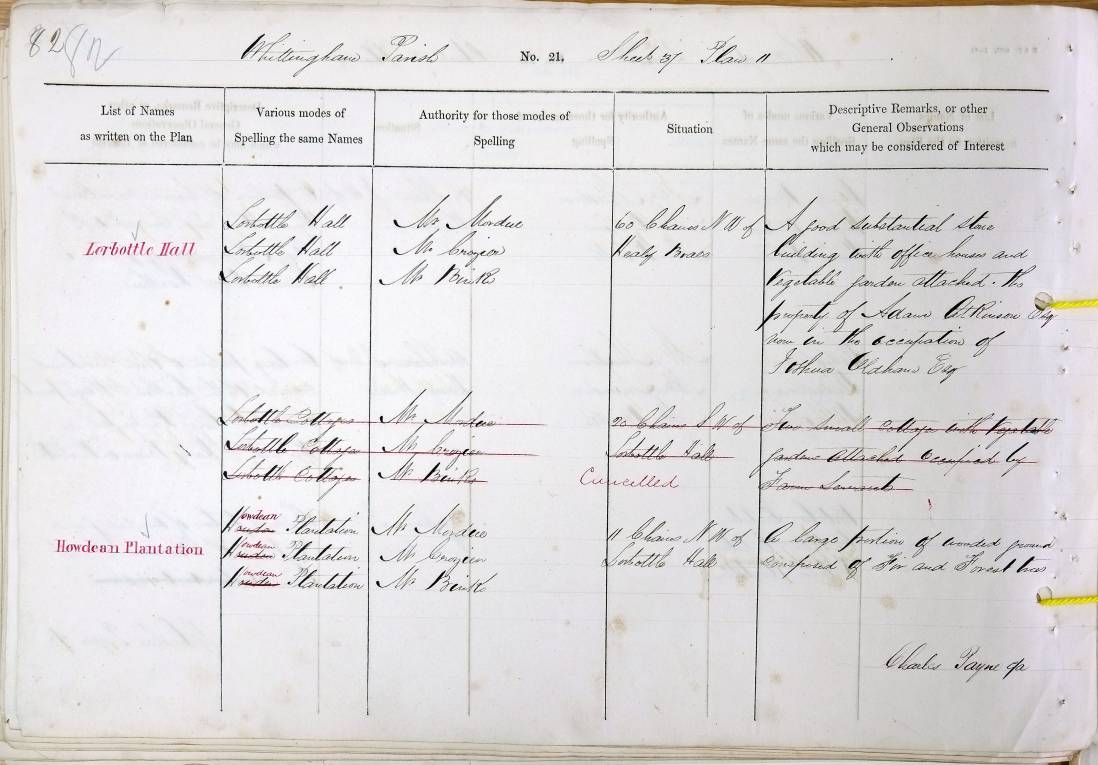 82
Whittingham Parish No. 21, Sheet 37 Plan 11
List of Names
as written on the Plan
Various modes of
Spelling the same Names
Authority for those modes of
Spelling
Situation
Descriptive Remarks, or other
General Observations
which may be considered of Interest
Lorbottle Hall
Lorbottle Hall Mr. Mordue 60 Chains N W of A good substantial stone
Lorbottle Hall Mr Crozier Healy Brass building with office houses and
Lorbottle Hall Mr Binks Vegetable garden attached. the
property of Adam Atkinson Esq
now in the occupation of
Joshua Oldham Esq
Lorbottle Cottages Mr Mordue 20 Chains S W of Few small Cottages with Vegetable
Lorbottle Cottages Mr Crozier Lorbottle Hall gardens attached occupied by
Lorbottle Cottages Mr Binks Cancelled Farm Servants
Howdean Plantation
Howdean Plantation Mr Mordue 11 Chains N W of A large portion of wooded ground
Howdean Plantation Mr Crozier Lorbottle Hall composed of Fir and Forest trees
Howdean Plantation Mr Binks
Charles Payne